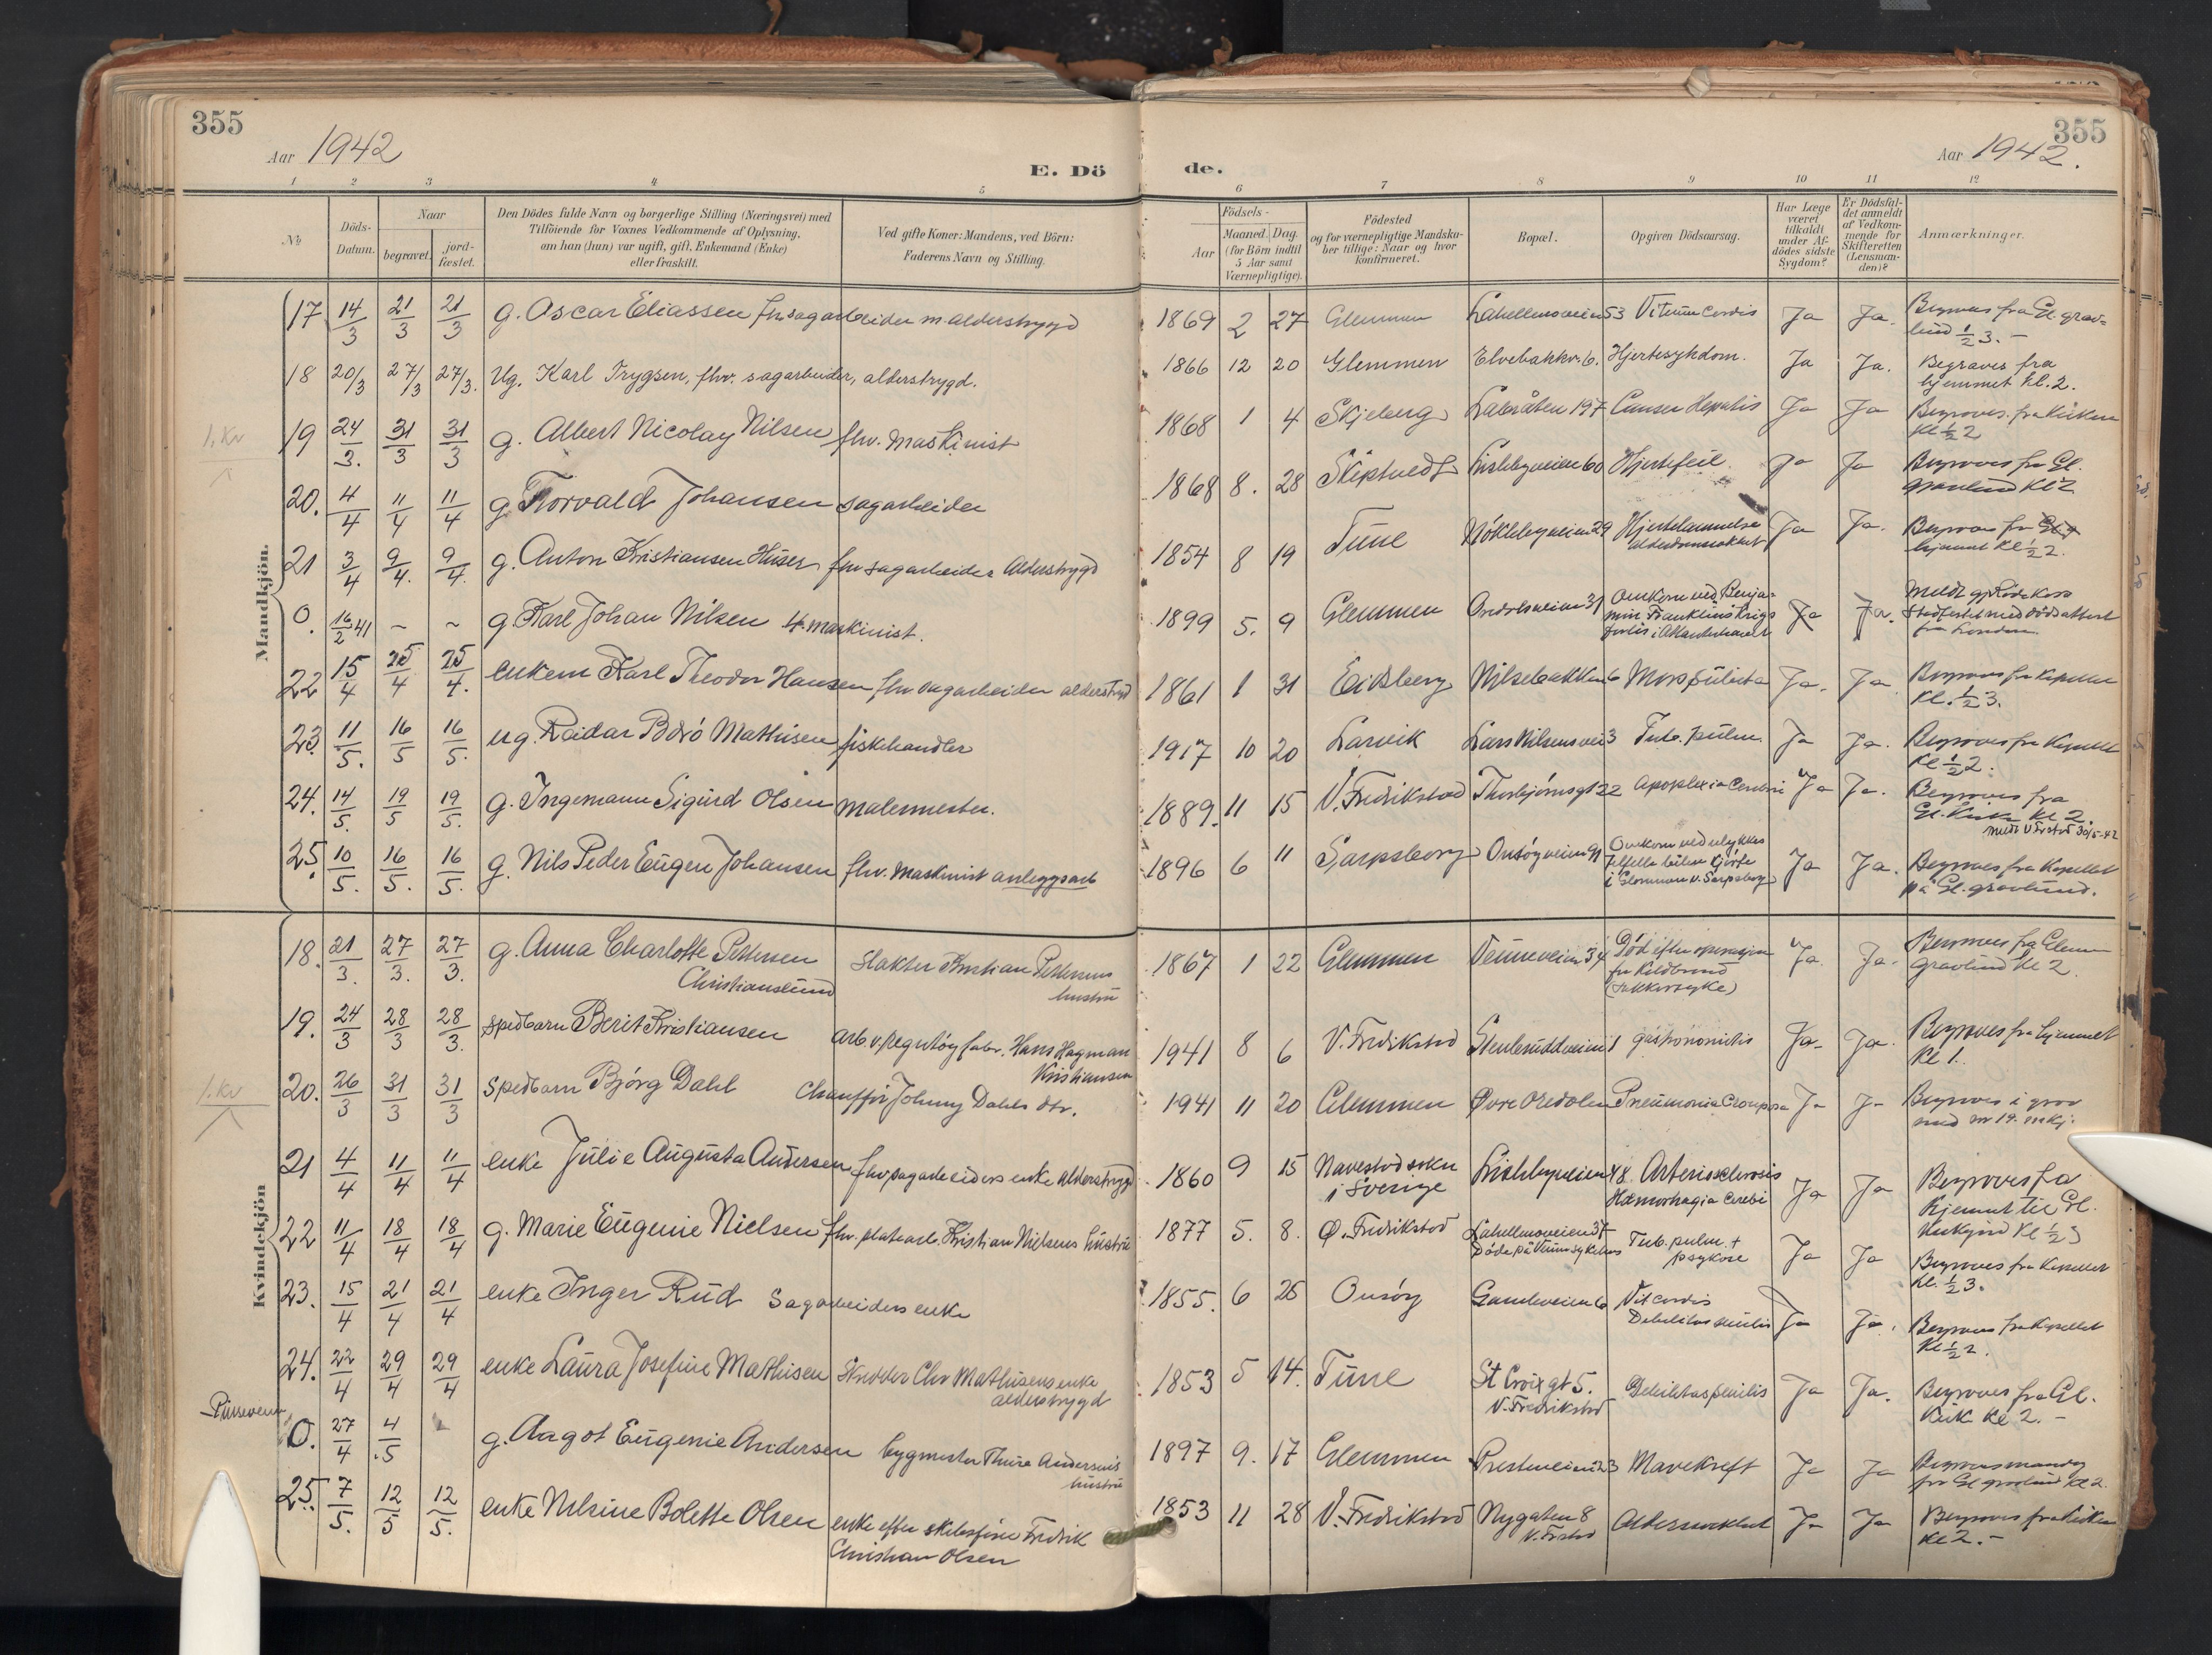 355
Aar 1942
E. Dö
de.
355
Aar 1942.
1 2 3 4 5 6 7 8 9 10 11 12
No
Döds-
Datum.
Naar
begravet.
jord-
fæstet.
Den Dödes fulde Navn og borgerlige Stilling (Næringsvei) med
Tilföiende for Voxnes Vedkommende af Oplysning,
om han (hun) var ugift, gift, Enkemand (Enke)
eller fraskilt.
Ved gifte Koner: Mandens, ved Börn:
Faderens Navn og Stilling.
Födsels-
Aar
Maaned. Dag.
(for Börn indtil
5 Aar samt
Værnepligtige).
Födested
og for værnepligtige Mandska-
ber tillige: Naar og hvor
konfirmeret.
Bopæl.
Opgiven Dödsaarsag.
Har Læge
været
tilkaldt
under Af-
dödes sidste
Sygdom?
Er Dödsfal-
det anmeldt
af Vedkom-
mende for
Skifteretten
(Lensman-
den)?
Anmærkninger.
Mandkjön.
17 14/3 21/3 21/3 g. Oscar Eliassen fhv sagarbeider m. alderstrygd 1869 2 27 Glemmen 53 Vitium Cordis Ja Ja. Begraves fra Gl. grav-
lund 1/2 3. -
18 20/3 27/3 27/3. Ug. Karl Trygsen, fhv. sagarbeider, alderstrygd. 1866 12 20 Glemmen Elvebakkv. 6. Hjertesykdom. Ja Ja. Begraves fra
hjemmet kl. 2.
1. kv
19 24/3. 31/3 31/3 g. Albert Nicolay Nilsen fhv. Maskinist 1868 1 4 Skjeberg Labråten 197 Cancer Hepatis Ja Ja Begraves fra kirken
Kl 1/2 2
20. 4/4 11/4 11/4 g. Torvald Johansen sagarbeider 1868 8. 28 Skiptvedt Lislebyveien 60 Hjertefeil Ja Ja Begraves fra Gl.
gravlund Kl 2
21 3/4 9/4. 9/4. g. Anton Kristiansen Huser fhv sagarbeider Alderstrygd 1854 8 19 Tune Nökkebyveien 29 Hjertelammelse Ja Ja. Begraves fra
hjemmet Kl 1/2 2.
0. 16/2 41 ~ ~ g. Karl Johan Nilsen 4. maskinist. 1899 5. 9 Glemmen 31 Omkom ved Benja-
min Franklins krigs
forlis i Atlanterhavet Ja Ja. Meldt gj Röde Kors
Stadfestet med dödsattest
fra London
22 15/4 25/4 25/4. enkem Karl Theodor Hansen fhv sagarbeider alderstrygd 1861 1 31 Eidsberg Nilsebakken 6 Mors subita Ja. Ja Begraves fra kapellet
kl. 1/2 3.
23. 11/5. 16/5 16/5. ug. Reidar Mathisen fiskehandler 1917 10 20 Larvik Lars Nilsens vei 3 Tub. pulm. Ja Ja. Begraves fra kapellet
Kl 1/2 2.
24. 14/5. 19/5 19/5. g. Ingemann Sigurd Olsen Malermester. 1889. 11 15 V. Fredrikstad Thorbjörnsgt 22 Apoplexia Cerebri Ja Ja. Begraves fra
Gl. Kirke kl 2.
meldt V. Frstad 30/5-42
25. 10/5. 16/5. 16/5. g. Nils Peder Eugen Johansen fhv. Maskinist anleggsarb 1896 6 11 Sarpsborg Onsöyveien 91 Omkom ved ulykkes
tilfelle bilen kjörte
i Glommen v. Sarpsborg Ja Ja. Begraves fra Kapellet
på Gl. gravlund.
Kvindekjön
18. 21/3. 27/3. 27/3. g. Anna Charlotte Pettersen
Christianslund
Slakter Kristian Pettersens
hustru 1867 1 22 Glemmen Veumveien 34 Död efter operasjon
for koldbrand
(sukkersyke) Ja Ja. Begraves fra Glemmen
Gravlund kl 2.
19. 24/3 28/3 28/3. spedbarn Berit Kristiansen arb. v. regntöyfabr. Hans Hagman
Kristiansen 1941 8 6 V. Fredrikstad 1 Ja- Ja. Begraves fra hjemmet
kl 1.
1. kv
20. 26/3 31/3 31/3 spedbarn Björg Dahl Chaufför Johnny Dahls dtr. 1941 11 20 Glemmen Øvre Oredalen Pneumonia Crouposa Ja Ja Begraves i grav
med nr 19. mkj.
21 4/4 11/4 11/4 enke Julie Augusta Andersen fhv sagarbeiders enke alderstrygd 1860 9 15 Navestad sokn
i Sverige Lislebyveien 48. Arterisclerosis
Hæmorhagia Cerebi Ja Ja Begraves fra
hjemmet til Gl.
kirkegård Kl 1/2 3
22 11/4 18/4 18/4 g. Marie Eugenie Nielsen fhv. platearb. Kristian Nielsens hustru 1877 5. 8. Ø. Fredrikstad Lahellemoveien 37
Döde på Veum sykehus Tub. pulm. +
psykose Ja Ja Begraves fra Kapellet
Kl. 1/2 3.
23. 15/4 21/4 21/4 enke Inger Rud Sagarbeiders enke 1855. 6 26 Onsöy Gamleveien 6 Vit cordis
Debilitas senilis Ja Ja. Begraves fra Kapellet
Kl 1/2 2.
24. 22/4 29/4 29/4 enke Laura Josefine Mathisen Skredder Chr Mathisens enke
alderstrygd 1853 5 14. Tune St Croix gt 5.
V. Fredrikstad Debilitas senilis Ja Ja. Begraves fra Gl.
Kirk kl 2. -
0. 27/4 4/5 g. Aagot Eugenie Andersen bygmester Thure Andersens
hustru 1897 9. 17 Glemmen Presteveien 23 Mavekreft Ja Ja
fra Gl gravlund kl 2.
25. 7/5. 12/5 12/5. enke Nilsine Bolette Olsen enke efter skibsförer Fredrik
Christian Olsen 1853 11 28 V. Fredrikstad Nygaten 8
V. Frstad Alderssvekkelse Ja Ja Begraves fra kirken
kl 2. -